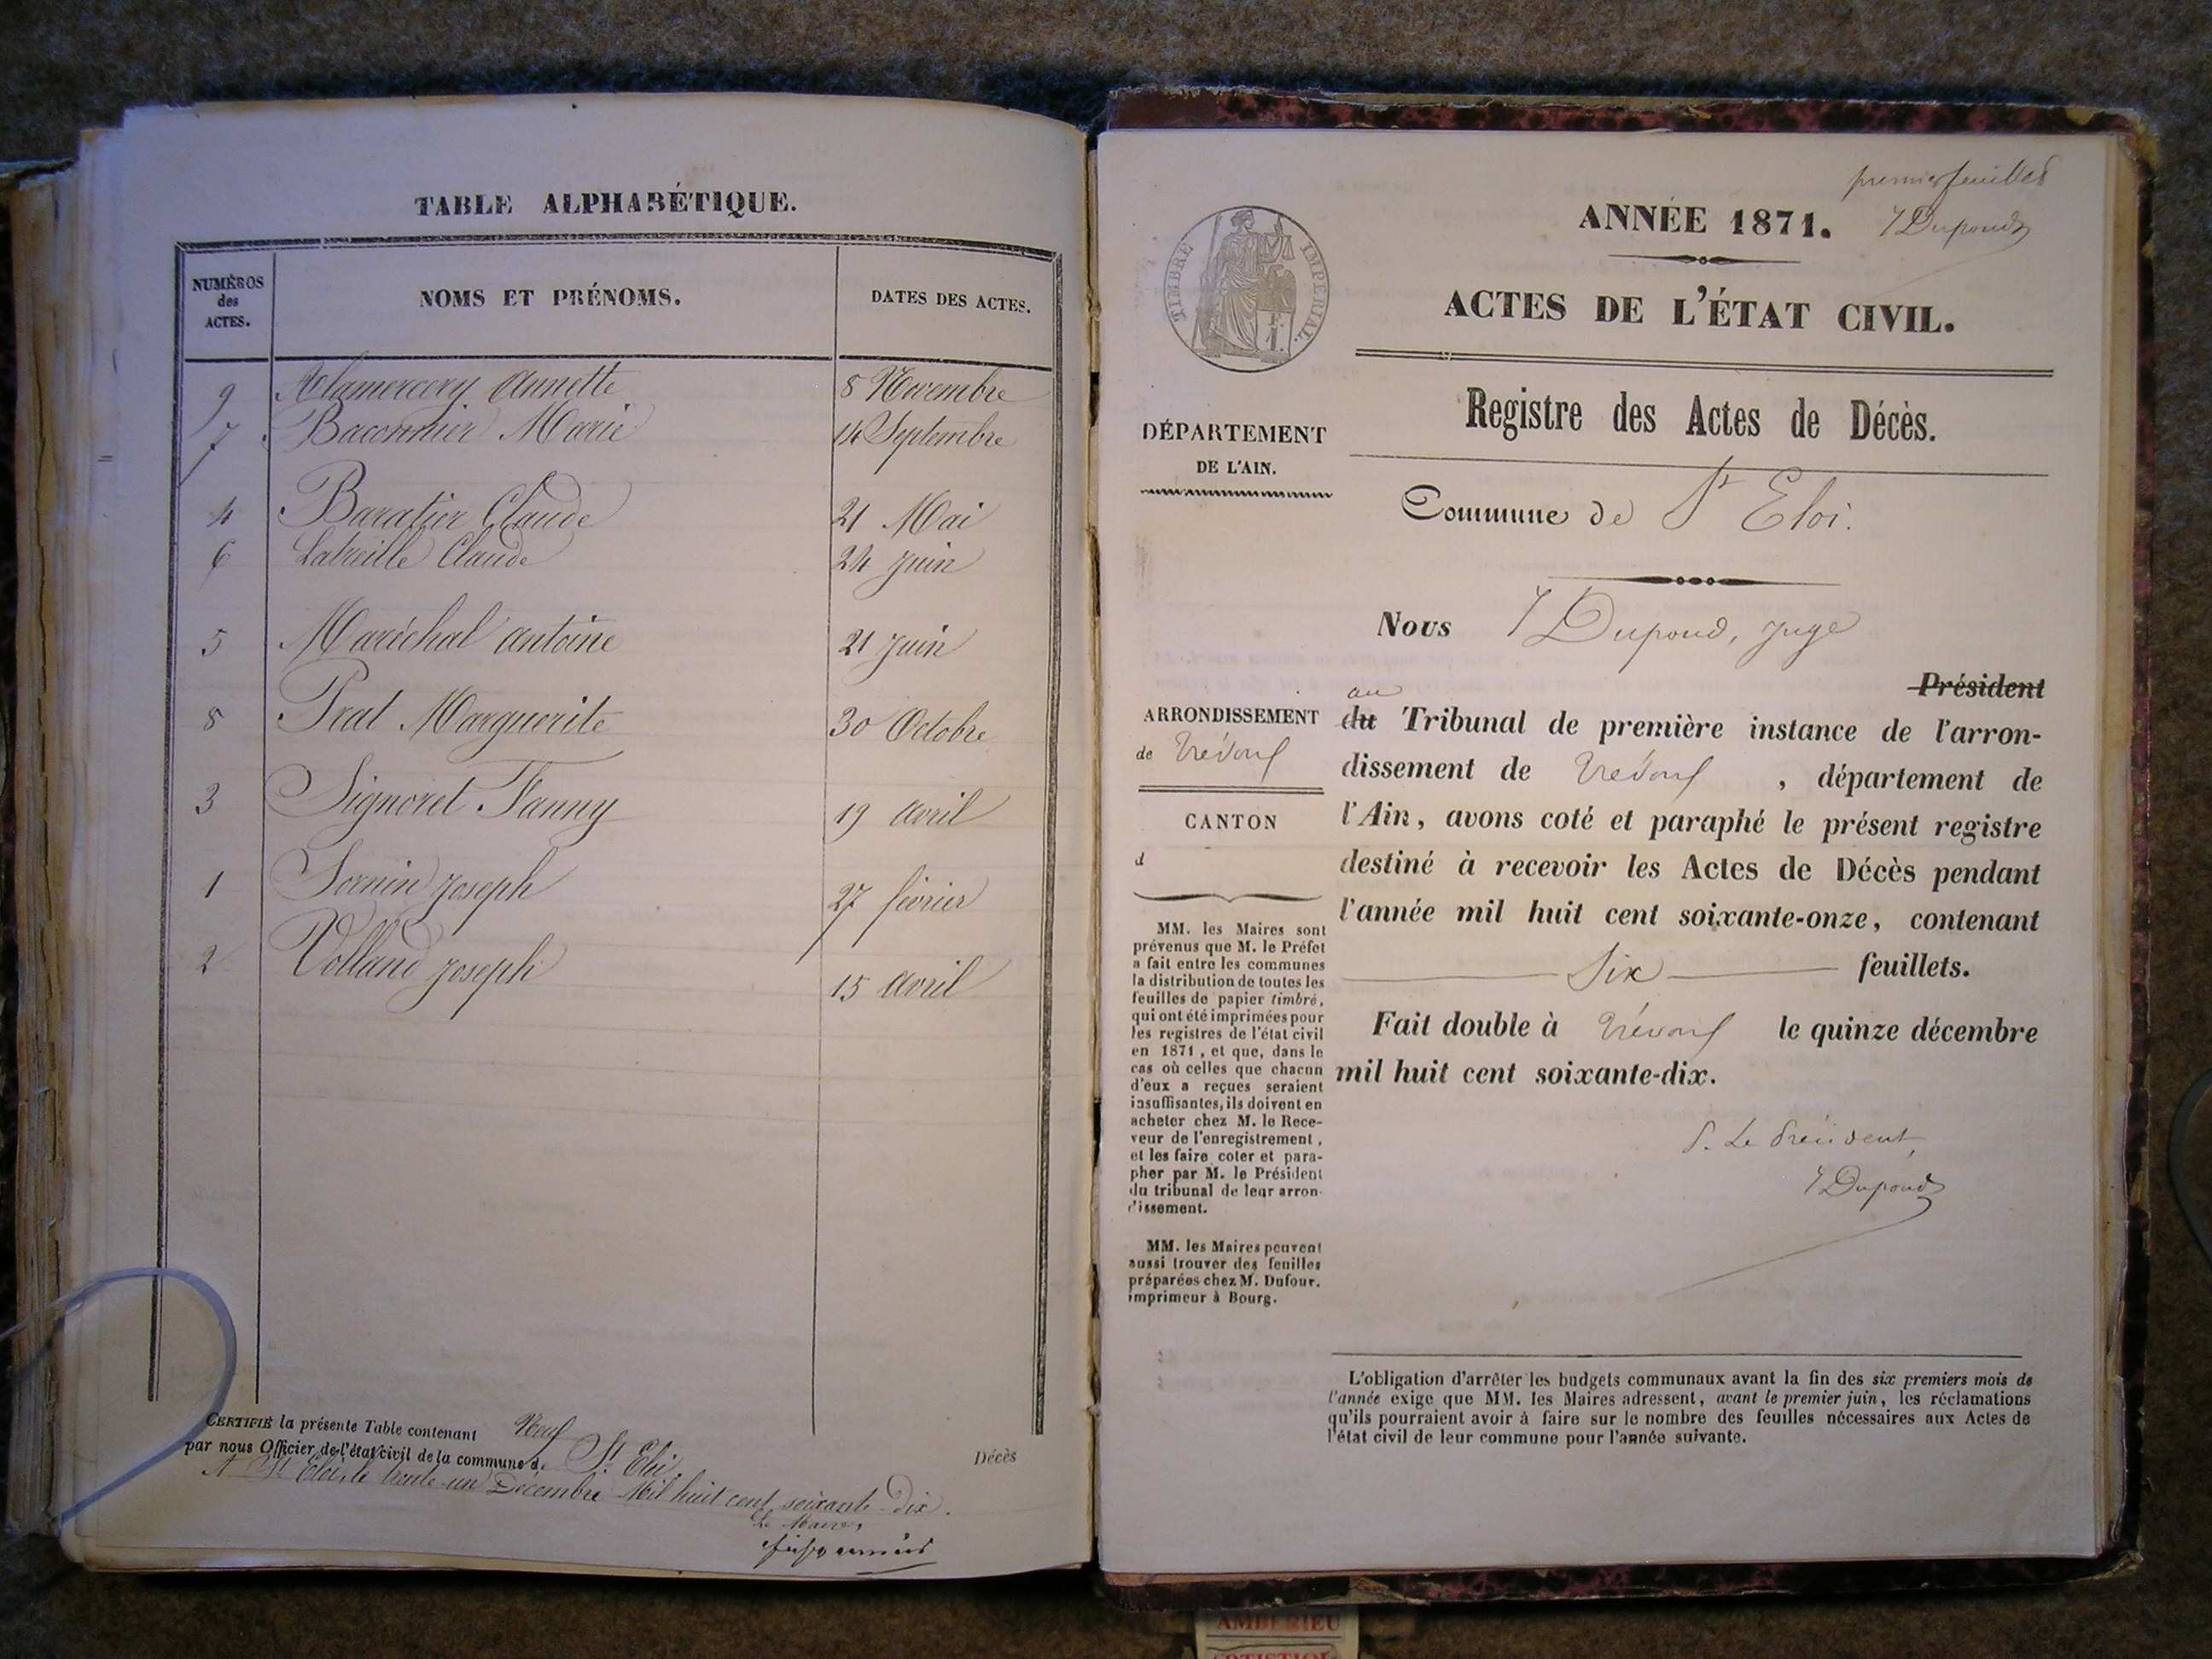 TABLE ALPHABÉTIQUE.
NUMÉROS des ACTES. NOMS ET PRÉNOMS. DATES DES ACTES.
9 Alamercery Annette 8 Novembre
7 Baconnier Marie 14 Septembre
4 Baratier Claude 21 Mai
6 Latreille Claude 24 juin
5 Maréchal Antoine 21 juin
8 Prat Marguerite 30 Octobre
3 Signoret Fanny 19 avril
1 Sornin Joseph 27 février
2 Volland Joseph 15 avril
CERTIFIÉ la présente Table contenant Neuf
par nous Officier de l'état civil de la commune de St Eloi.
A St Eloi, le trente-un Décembre Mil huit cent soixante-Dix.
Le Maire,
Décès
premier feuillet
J Dupond
ANNÉE 1871.
TIMBRE IMPÉRIAL.
ACTES DE L'ÉTAT CIVIL.
Registre des Actes de Décès.
DÉPARTEMENT
DE L'AIN.
Commune de St Eloi.
Nous J Dupond, juge
Président
au
du Tribunal de première instance de l'arron-
dissement de Trévoux, département de
l'Ain, avons coté et paraphé le présent registre
destiné à recevoir les Actes de Décès pendant
l'année mil huit cent soixante-onze, contenant
Six feuillets.
Fait double à Trévoux le quinze décembre
mil huit cent soixante-dix.
P. Le Président,
J Dupond
ARRONDISSEMENT
de Trévoux
CANTON
d
MM. les Maires sont
prévenus que M. le Préfet
a fait entre les communes
la distribution de toutes les
feuilles de papier timbré,
qui ont été imprimées pour
les registres de l'état civil
en 1871, et que, dans le
cas où celles que chacun
d'eux a reçues seraient
insuffisantes, ils doivent en
acheter chez M. le Rece-
veur de l'enregistrement,
et les faire coter et para-
pher par M. le Président
du tribunal de leur arron-
dissement.
MM. les Maires peuvent
aussi trouver des feuilles
préparées chez M. Dufour,
imprimeur à Bourg.
L'obligation d'arrêter les budgets communaux avant la fin des six premiers mois de
l'année exige que MM. les Maires adressent, avant le premier juin, les réclamations
qu'ils pourraient avoir à faire sur le nombre des feuilles nécessaires aux Actes de
l'état civil de leur commune pour l'année suivante.
AMBERIEU